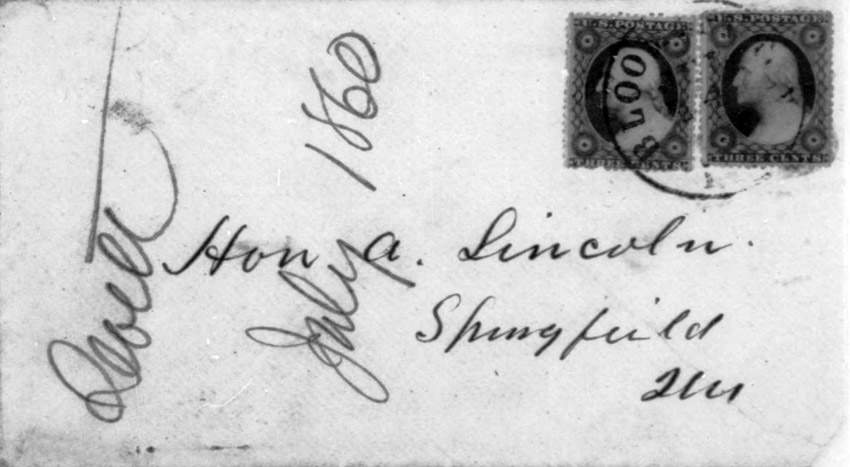 U.S. POSTAGE
U.S. POSTAGE
BLOO
THREE CENTS
THREE CENTS
Hon A. Lincoln.
Springfield
Ills
July 1860